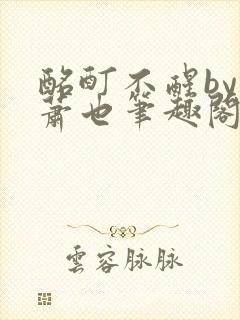 酩酊不醒by
萧也笔趣阁
雲容脉脉